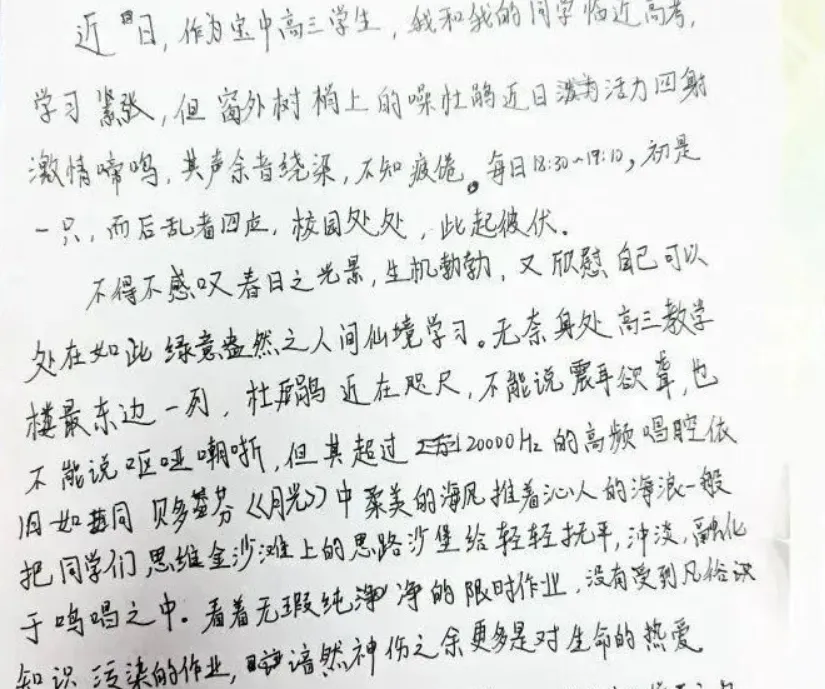 近日，作为宝中高三学生，我和我的同学临近高考，
学习紧张，但窗外树梢上的噪杜鹃近日活力四射
激情啼鸣，其声余音绕梁，不知疲倦。每日18:30~19:10，初是
一只，而后乱者四应，校园处处，此起彼伏。
不得不感叹春日之光景，生机勃勃，又欣慰自己可以
处在如此绿意盎然之人间仙境学习。无奈身处高三教学
楼最东边一列，杜鹃近在咫尺，不能说震耳欲聋，也
不能说呕哑嘲哳，但其超过20000Hz的高频唱腔依
旧如同贝多芬《月光》中柔美的海风推着沁人的海浪一般
把同学们思维金沙滩上的思路沙堡给轻轻抚平，冲淡，融化
于鸣唱之中。看着无瑕纯净的限时作业，没有受到凡俗识
知识污染的作业，谙然神伤之余更多是对生命的热爱。